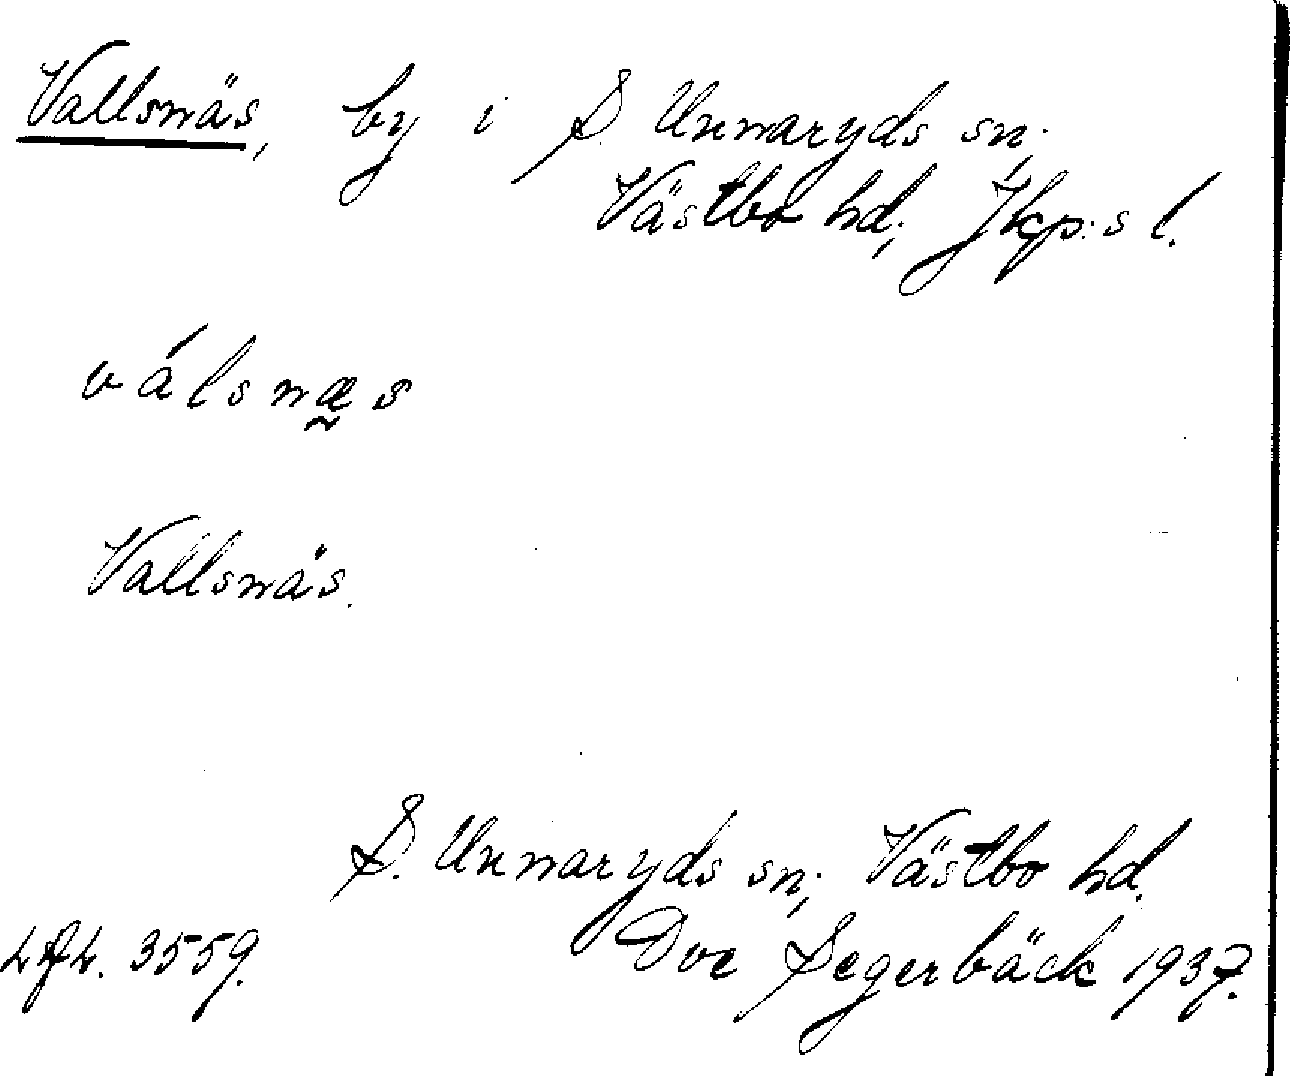 Vallsnäs, by i S. Unnaryds sn;
Västbo hd; Jkp:s l.
válsnæ̰s
Vallsnäs.
S. Unnaryds sn; Västbo hd.
3559. Ove Segerbäck 1937.